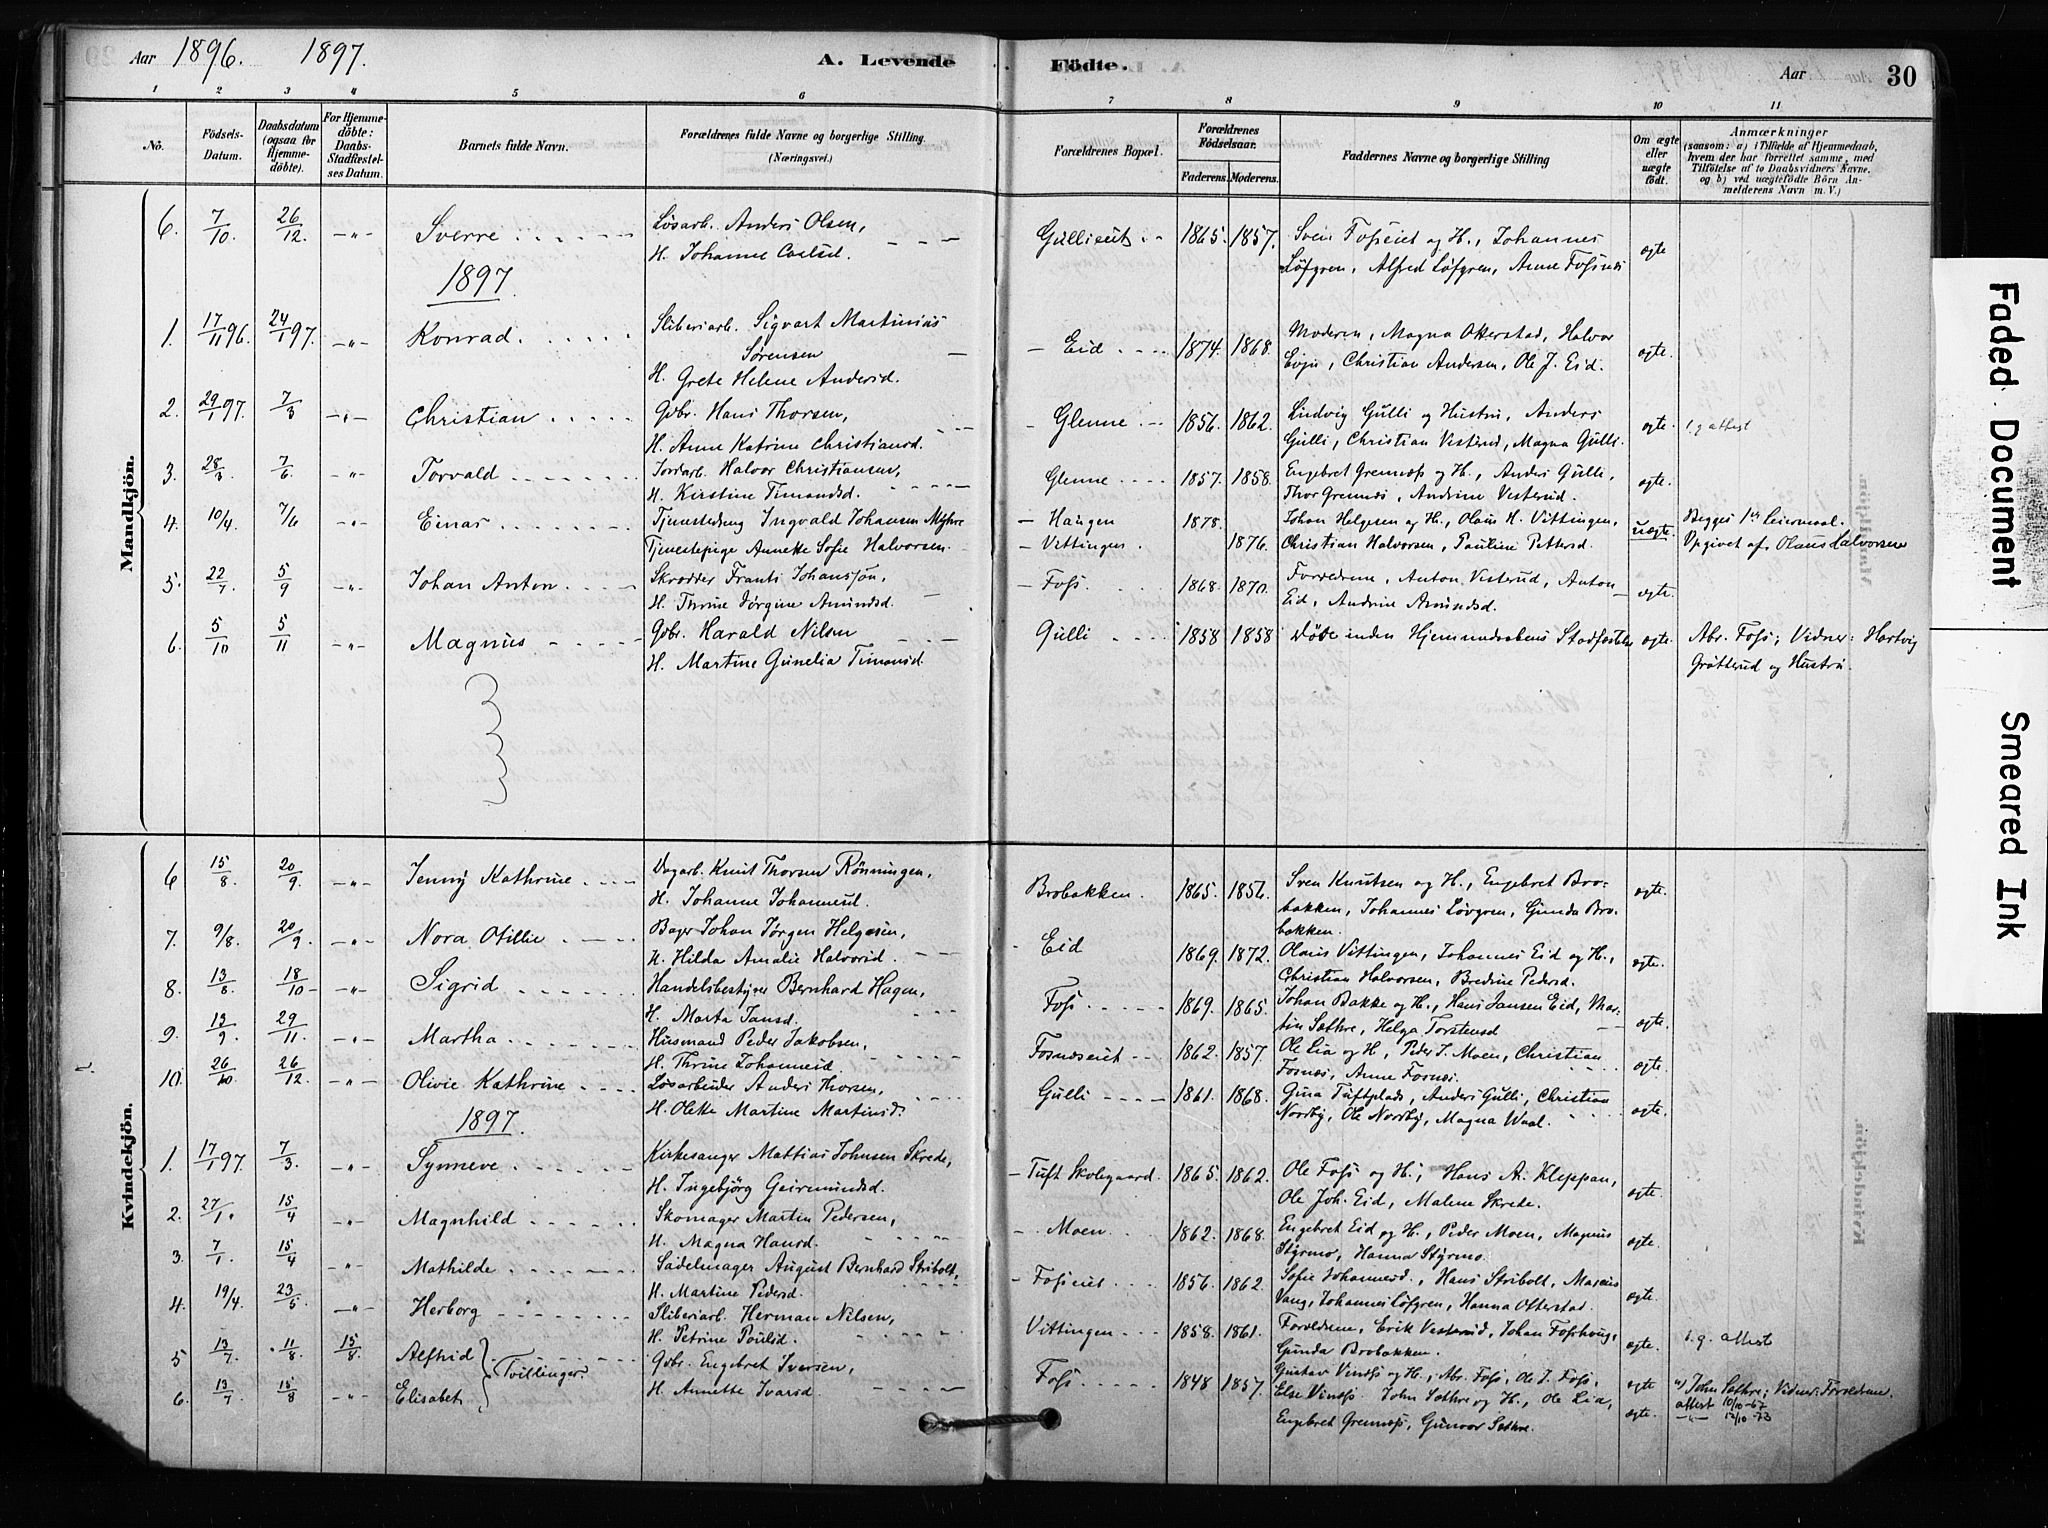 Aar 1896. 1897. A. Levende Födte. Aar 30
1 2 3 4 5 6 7 8 9 10 11
No. Födsels-Datum. Daabsdatum (ogsaa for Hjemmedöbte). For Hjemmedöbte: Daabs-Stadfæstelses Datum. Barnets fulde Navn. Forældrenes fulde Navne og borgerlige Stilling. (Næringsvei.) Forældrenes Bopæl. Forældrenes Födselsaar. Faderens. Moderens. Faddernes Navne og borgerlige Stilling Om ægte eller uægte födt. Anmærkninger (saasom: a) i Tilfælde af Hjemmedaab, hvem der har forrettet samme, med Tilföielse af to Daabsvidners Navne, og b) ved uægtefödte Börn Anmelderens Navn m. V.)
Mandkjön.
6. 7/10. 26/12. -"- Sverre Løsarb. Anders Olsen, Gullieit 1865. 1857. Sven Fosseiet og H., Johannes ægte
H. Johanne Carlsd. Løfgren, Alfred Løfgren, Anne Fosnæs
1897.
1. 17/11 96. 24/1 97. -"- Konrad. Sliberiarb. Sigvart Martinius Eid 1874. 1868. Moderen, Magna Otterstad, Halvor ægte.
Sørensen Evju, Christian Andersen, Ole J. Eid.
H. Grete Helene Andersd.
2. 29/1 97. 7/3 -"- Christian Gbr. Hans Thorsen, Glenne 1856. 1862. Ludvig Gulli og Hustru, Anders ægte. i.g. attest
H. Anne Katrine Christiansd. Gulli, Christian Vesterud, Magna Gulli.
3. 28/3 7/6 -"- Torvald Jordarb. Halvor Christiansen, Glenne 1857. 1858. Engebret Grennæss og H., Anders Gulli, ægte.
H. Kirstine Timandsd. Thor Grennæs, Andrine Vesterud.
4. 10/4. 7/6 -"- Einar Tjenestedreng Ingvald Johansen Myhre Haugen 1878. Johan Helgesen og H., Olaus H. Vittingen, uægte. Begges 1ste Leiermaal.
Tjenestepige Annette Sofie Halvorsen. Vittingen. 1876. Christian Halvorsen, Pauline Pettersd. Opgivet af: Olaus Halvorsen
5. 22/7. 5/9 -"- Johan Anton Skrædder Frants Johansson, Foss 1868. 1870. Forældrene, Anton Vesterud, Anton ægte.
H. Thrine Jørgine Amundsd. Eid, Andrine Amundsd.
6. 5/10 5/11 Magnus Gbr. Harald Nilsen Gulli 1858 1858 døde inden Hjemmedaabens Stadfæstelse ægte. Abr. Foss; Vidner: Hartvig
H. Martine Gunelia Timansd. Grøtterud og Hustru.
Kvindekjön.
6 15/8. 20/9. -"- Jenny Kathrine Dagarb. Knut Thorsen Rönningen, Brobakken. 1865. 1856. Sven Knutsen og H., Engebret Bro- ægte.
H. Johanne Johannesd. bakken, Johannes Løvgren, Gunda Bro-
bakken.
7. 9/8. 20/9. -"- Nora Otillie Bager Johan Jörgen Helgesen, Eid 1869. 1872. Olaus Vittingen, Johannes Eid og H., ægte.
H. Hilda Amalie Halvorsd. Christian Halvorsen, Bredine Pedersd.
8. 13/8. 18/10 -"- Sigrid Handelsbestyrer Bernhard Hagen, Foss 1869. 1865. Johan Bakke og H., Hans Jansen Eid, Mar- ægte.
H. Marta Jansd. tin Sæthre, Helga Torstensd
9. 13/9. 29/11. -"- Martha Husmand Peder Jakobsen, Fosnæseiet 1862. 1857. Ole Lia og H, Peder J. Moen, Christian ægte.
H. Thrine Johannesd. Fosnæs, Anne Fosnæs.
10. 26/10 26/12. -"- Olivie Kathrine Løsarbeider Anders Thorsen, Gulli 1861. 1868. Gina Tuftplads, Anders Gulli, Christian ægte.
H. Oleke Martine Martinsd. Nordby, Ole Nordby, Magna Waal.
1897.
1. 17/1 97. 7/3. -"- Synneve Kirkesanger Mattias Johnsen Skrede, Tuft Skolegaard. 1865. 1862. Ole Foss og H., Hans A. Kleppan, ægte.
H. Ingebjörg Geirmundsd. Ole Joh. Eid, Malene Skrede.
2. 27/1. 15/4 -"- Magnhild Skomager Martin Pedersen, Moen 1862. 1868. Engebret Eid og H., Peder Moen, Magnus ægte.
H. Magna Hansd. Styrmo, Hanna Styrmo.
3. 7/1. 15/4 -"- Mathilde Sadelmager August Bernhard Stribolt, Fosseiet 1856. 1862. Sofie Johannesd., Hans Stribolt, Marius ægte.
H. Martine Pedersd. Vang, Johannes Løfgren, Hanna Otterstad.
4. 19/4. 23/5. -"- Herborg Sliberiarb. Herman Nilsen, Vittingen 1858. 1861. Forældrene, Erik Vesterud, Johan Fosshaug, ægte. i.g. attest
H. Petrine Poulsd. Gunda Brobakken.
5 13/7. 11/8. 15/8. Alfhid } Tvillinger. Gbr. Engebret Iversen, Foss 1848 1857. Gustav Vindss og H., Abr. Foss, Ole J. Foss, ægte John Sæthre; Vidner: Forældrene.
6. 13/7 15/8 -"- Elisabet H. Annette Ivarsd. Else Vindss. John Sæthre og H., Ole Lia, ægte. attest 10/10-67
Engebret Grennæss, Gunvor Sæthre. -"- 12/10-73
Faded Document Smeared Ink